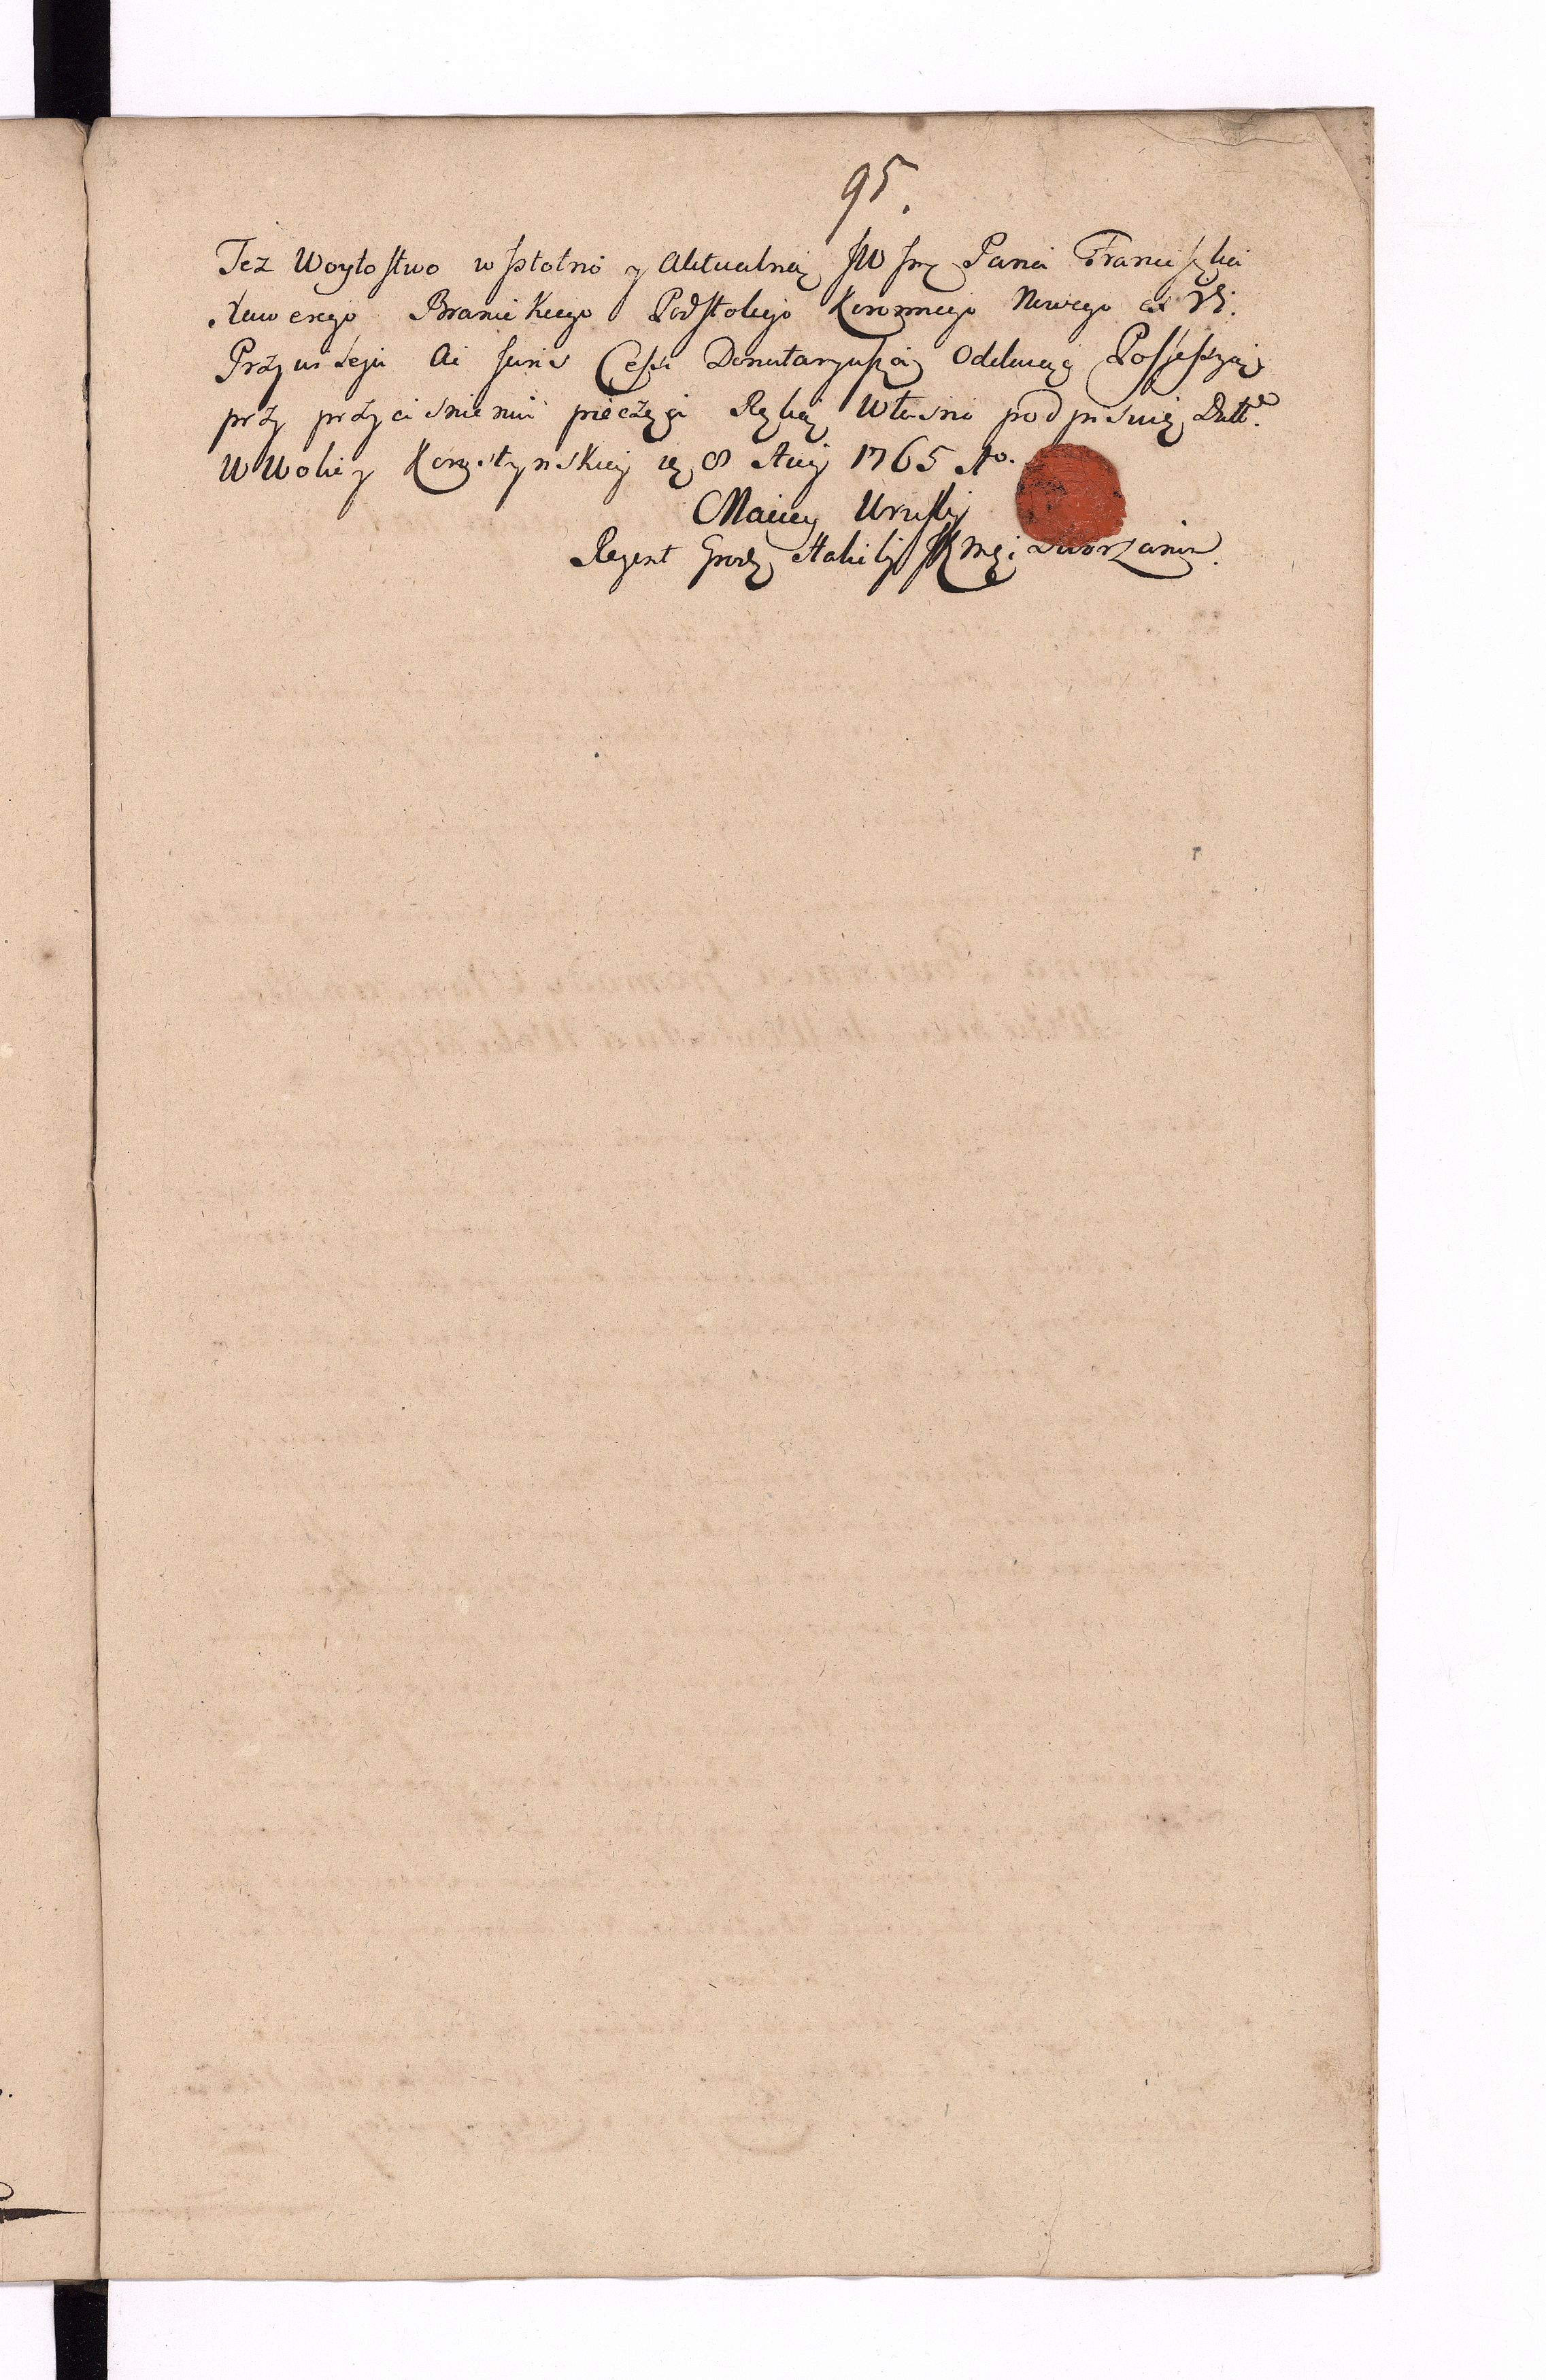 95.
Też Woytostwo w istotną y Aktualną JW Jmę Pana Franciszka
Xawerego Branickiego Podstolego Koronnego Nowego ex Vi.
Przywileju Ai Juris Cessi Donataryusza Oddawaję Possessyą
przy przyciśnieniu pieczęci Ręką Własną podpisuię Datt.
W Wolicy Korostynskiey 8 Aug 1765 Ao.
Maciey Uruski
Regent Grodz Halicki JKMci Dworzanin.